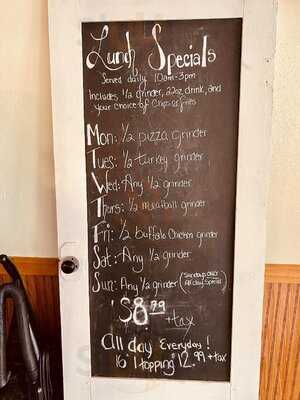 Lunch Specials
Served daily 10am-3pm
Includes 1/2 grinder, 22oz drink, and
your choice of Chips or fries
Mon: 1/2 pizza grinder
Tues: 1/2 turkey grinder
Wed: Any 1/2 grinder
Thurs: 1/2 meatball grinder
Fri: 1/2 buffalo Chicken grinder
Sat: Any 1/2 grinder
Sun: Any 1/2 grinder (Sundays ONLY
All day Special)
$8.99
+tax
All day Everyday!
16" 1 topping $12.99 + tax